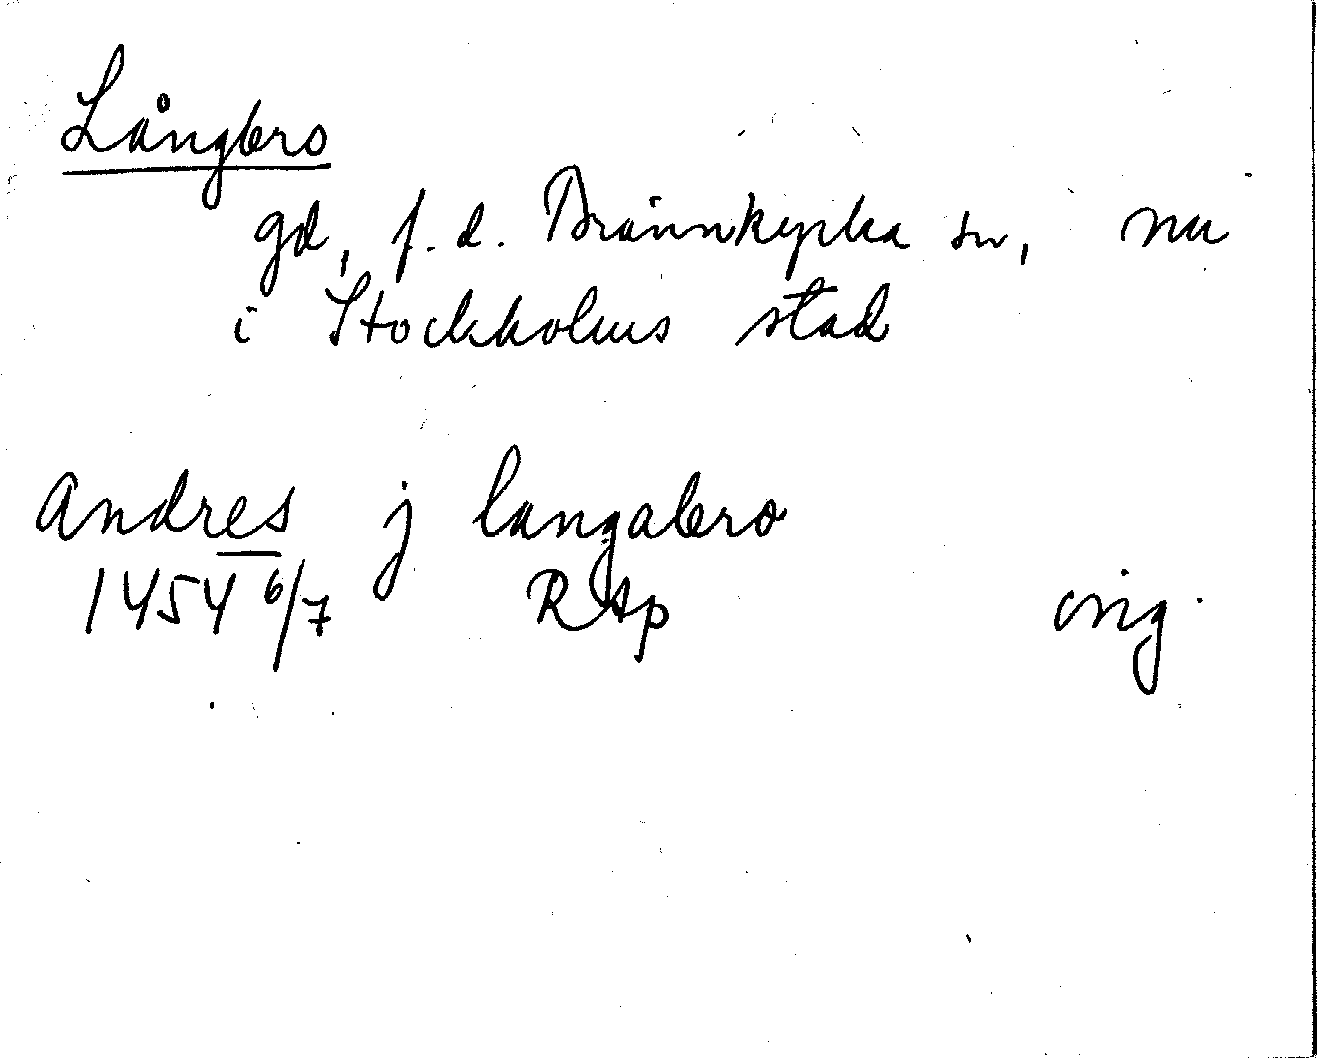 Långbro
gd, f. d. Brännkyrka sn, nu
i Stockholms stad
Andres j langabro
1454 6/7 RAp orig.